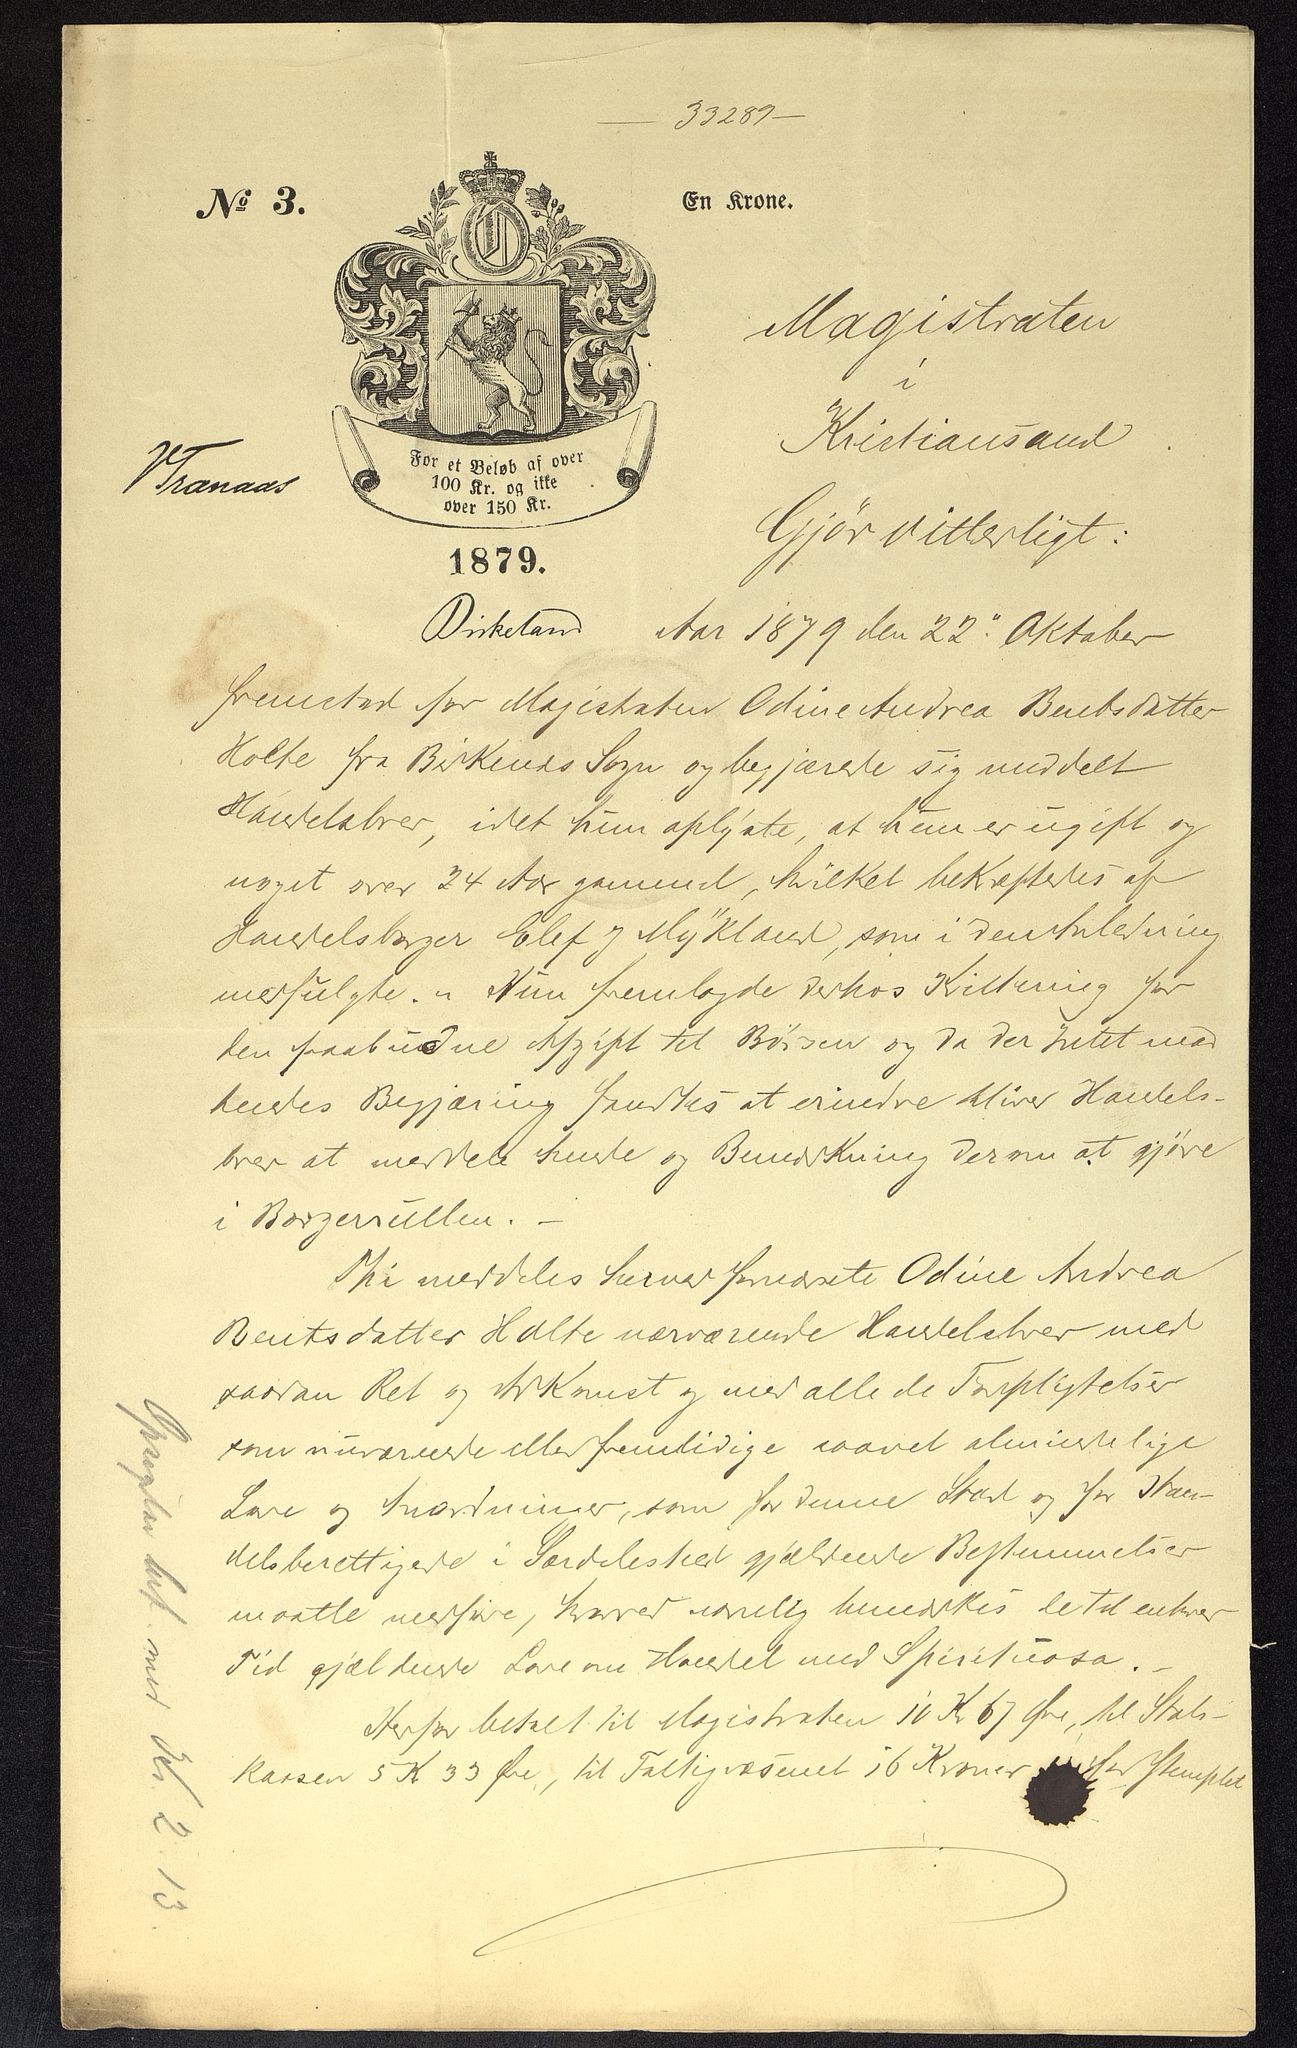 — 33289 —
No 3.
En Krone.
For et Beløb af over
100 Kr. og ikke
over 150 Kr.
1879.
VTranaas
Birkeland
Magistraten
i
Kristiansand
Gjör vitterligt:
Aar 1879 den 22. Oktober
fremstod for Magistraten Odine Andrea Bentsdatter
Holte fra Birkenes Sogn og begjærede sig meddelt
Handelsbrev, idet hun oplyste, at hun er ugift og
noget over 24 Aar gammel, hvilket bekræftedes af
Handelsborger Elef J Mykland, som i den Anledning
medfulgte. Hun fremlagde derhos Kvittering for
den paabudne Afgift til Börsen og da der Intet mod
hendes Begjæring fandtes at erindre bliver Handels-
brev at meddele hende og Bemærkning derom at gjöre
i Borgerrullen. —
Thi meddeles herved fornævnte Odine Andrea
Bentsdatter Holte nærværende Handelsbrev med
saadan Ret og Adkomst og med alle de Forpligtelser
som nuværende eller fremtidige saavel almindelige
Love og Anordninger, som for denne Stad og for Han-
delsberettigede i Særdeleshed gjældende Bestemmelser
maatte medføre, hvorved navnlig bemærkes de til enhver
Tid gjældende Love om Handel med Spirituosa. —
Herfor betalt til Magistraten 10 Kr 67 Øre, til Stats-
kassen 5 K 33 Øre, til Fattigvæsenet 16 Kroner for Stemplet
2 13